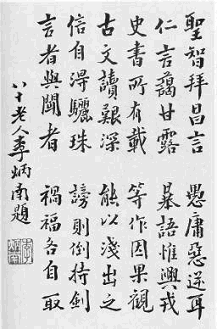 聖智拜昌言 愚庸惡逆耳
仁言藹甘露 暴語惟興戎
史書所有載 等作因果觀
古文讀艱深 能以淺出之
信自得驪珠 謗則倒持劍
言者與聞者 禍福各自取
八十老人李炳南題